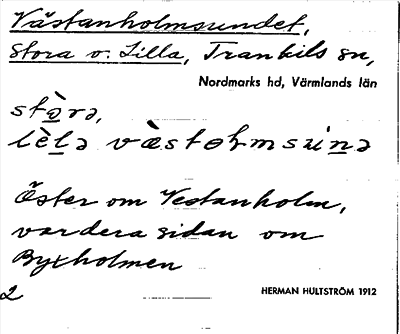 Västanholmsundet,
Stora o. Lilla, Trankils sn,
Nordmarks hd, Värmlands län
stò̱rə,
lèḻə vàstohmsuiṉə
Öster om Vestanholm,
vardera sidan om
Byxholmen
2
HERMAN HULTSTRÖM 1912